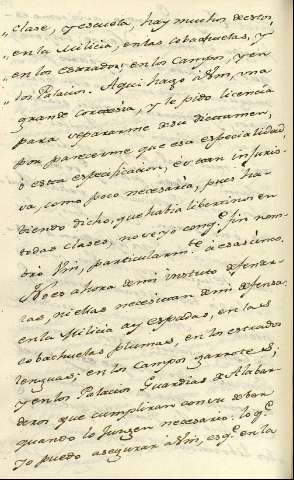 "clase, y escuela, hay muchos de estos,
"en la Milicia, en las cobachuelas, y
"en los estrados, en los Campos, y en
"los Palacios. Aqui hago à Vm, una
grande cortesia, y le pido licencia
para separarme de su dictamen,
por parecerme que esa especialidad,
ò esta especificacion, es tan injurio-
sa, como poco necesaria, pues ha-
viendo dicho, que habia libertinos en
todas clases, no veo yo conq.e fin nom-
bró Vm, particularm.te à esas cinco.
No es ahora de mi instituto defender-
las, ni ellas necesitan de mi defensa.
en la Milicia ay espadas, en las
cobachuelas plumas, en los estrados
lenguas; en los Campos garrotes;
y en los Palacios Guardias de Alabar-
deros que cumpliran con su deber
quando lo juzgen necesario: lo q.e
yo puedo asegurar a Vm, es q.e en la